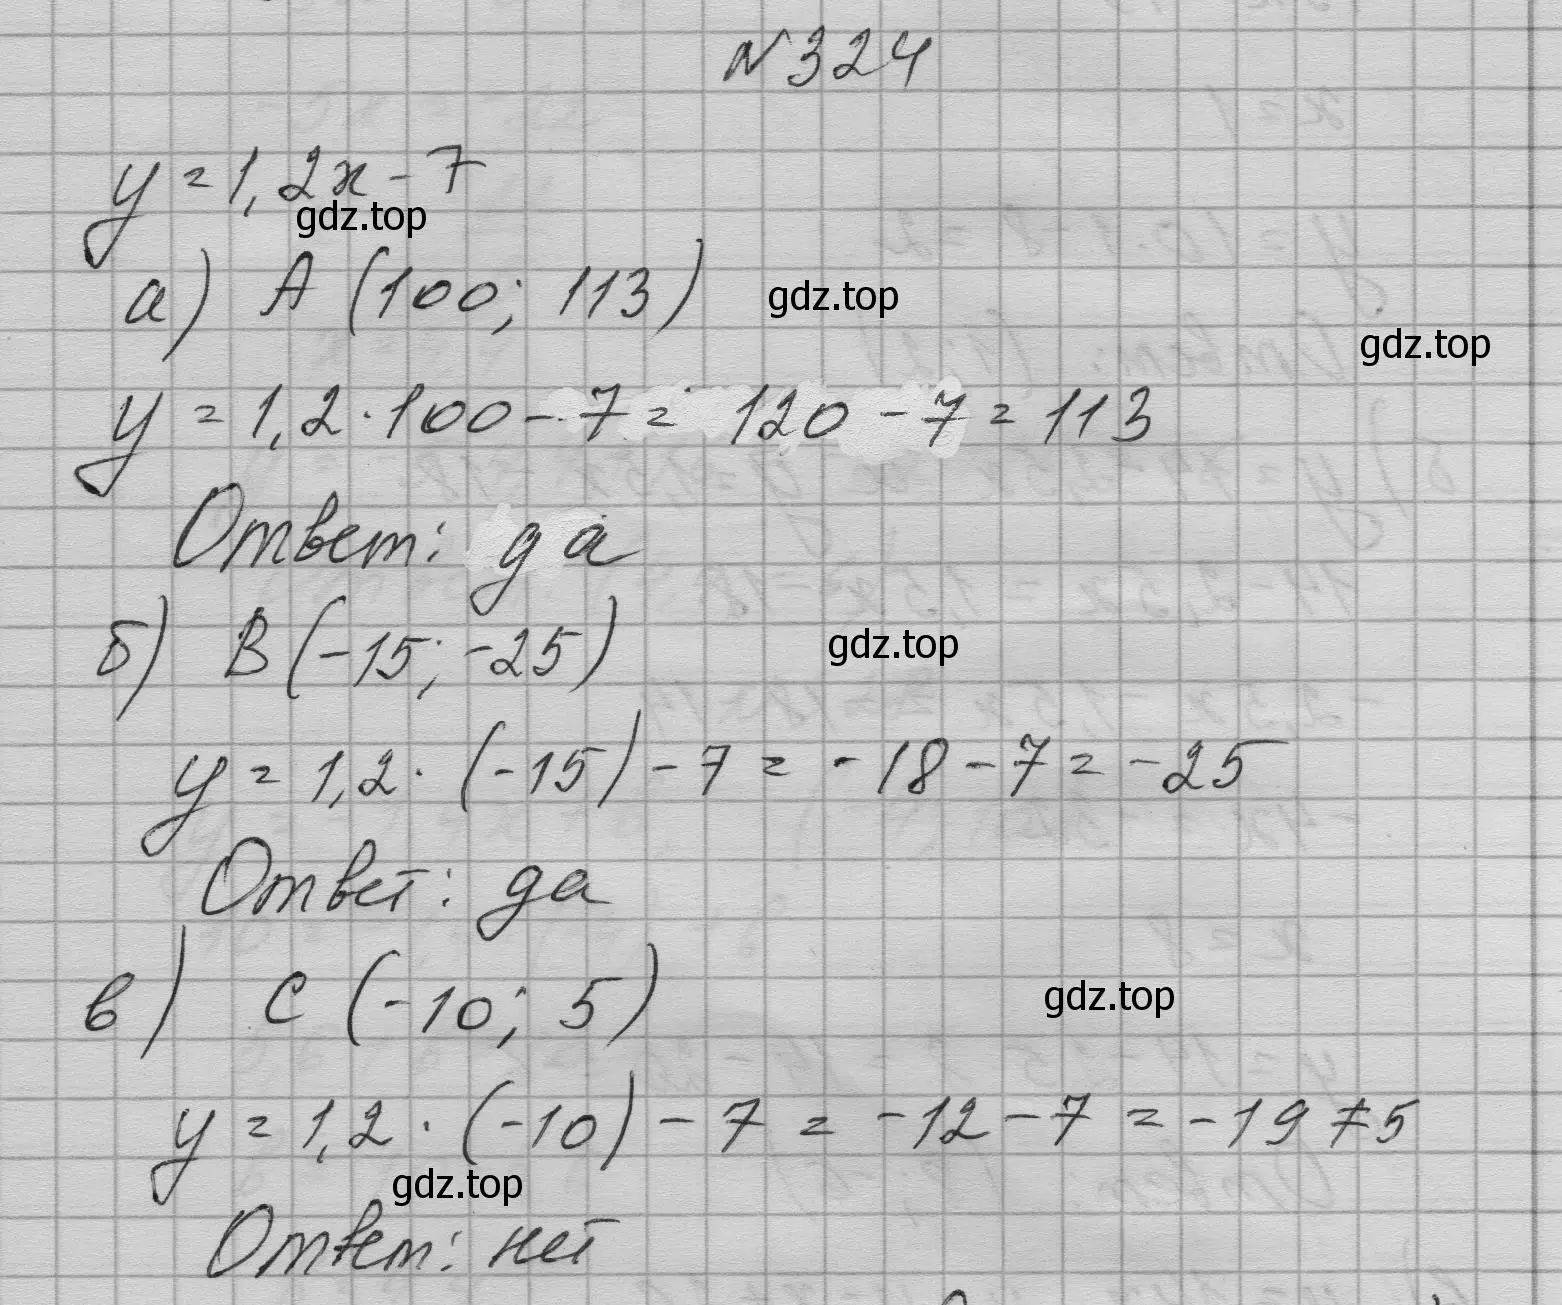 №324
y = 1,2x - 7
gdz.top
а) A (100; 113)
gdz.top
gdz.top
y = 1,2 · 100 - 7 = 120 - 7 = 113
Ответ: да
б) B (-15; -25)
gdz.top
y = 1,2 · (-15) - 7 = -18 - 7 = -25
Ответ: да
в) C (-10; 5)
gdz.top
y = 1,2 · (-10) - 7 = -12 - 7 = -19 ≠ 5
gdz.top
Ответ: нет